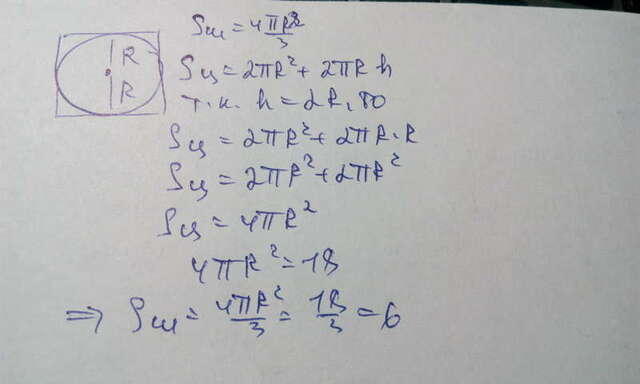 Sш = 4πR²/3
Sц = 2πR² + 2πR h
т.к. h = 2R, то
R
R
Sц = 2πR² + 2πR·R
Sц = 2πR² + 2πR²
Sц = 4πR²
4πR² = 18
⇒ Sш = 4πR²/3 = 18/3 = 6